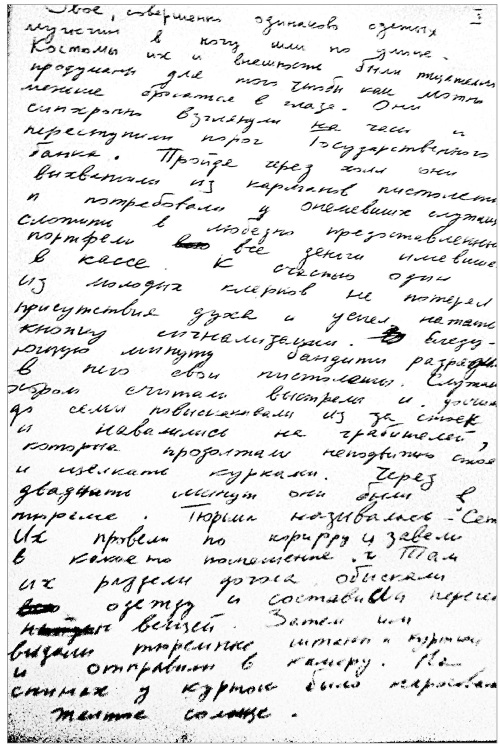 I
Двое, совершенно одинаково одетых
мужчин в ногу шли по улице.
Костюмы их и внешность были тщательно
продуманы для того чтобы как можно
меньше бросатся в глаза. Они
синхронно взглянули на часы и
переступили порог Государственного
банка. Пройдя через холл они
выхватили из карманов пистолеты
и потребовали у онемевших служащих
сложить в любезно предоставленные
портфели все деньги имевшиеся
в кассе. К счастью один
из молодых клерков не потерял
присутствия духа и успел нажать
кнопку сигнализации. В следу-
ющую минуту бандиты разрядили
в него свои пистолеты. Служащие
хором считали выстрелы и дойдя
до семи повыскакивали из за стоек
и навалились на грабителей,
которые продолжали неподвижно стоять
и щелкать курками. Через
двадцать минут они были в
тюрьме. Тюрьма называлась "Сет
Их провели по корирру и завели
в какоето помещение. Там
их раздели догола обыскали
одежду и составили перечень
вещей. Затем им
выдали тюремные штаны и куртки
и отправили в камеру. На
спинах у курток было нарисовано
желтое солнце.